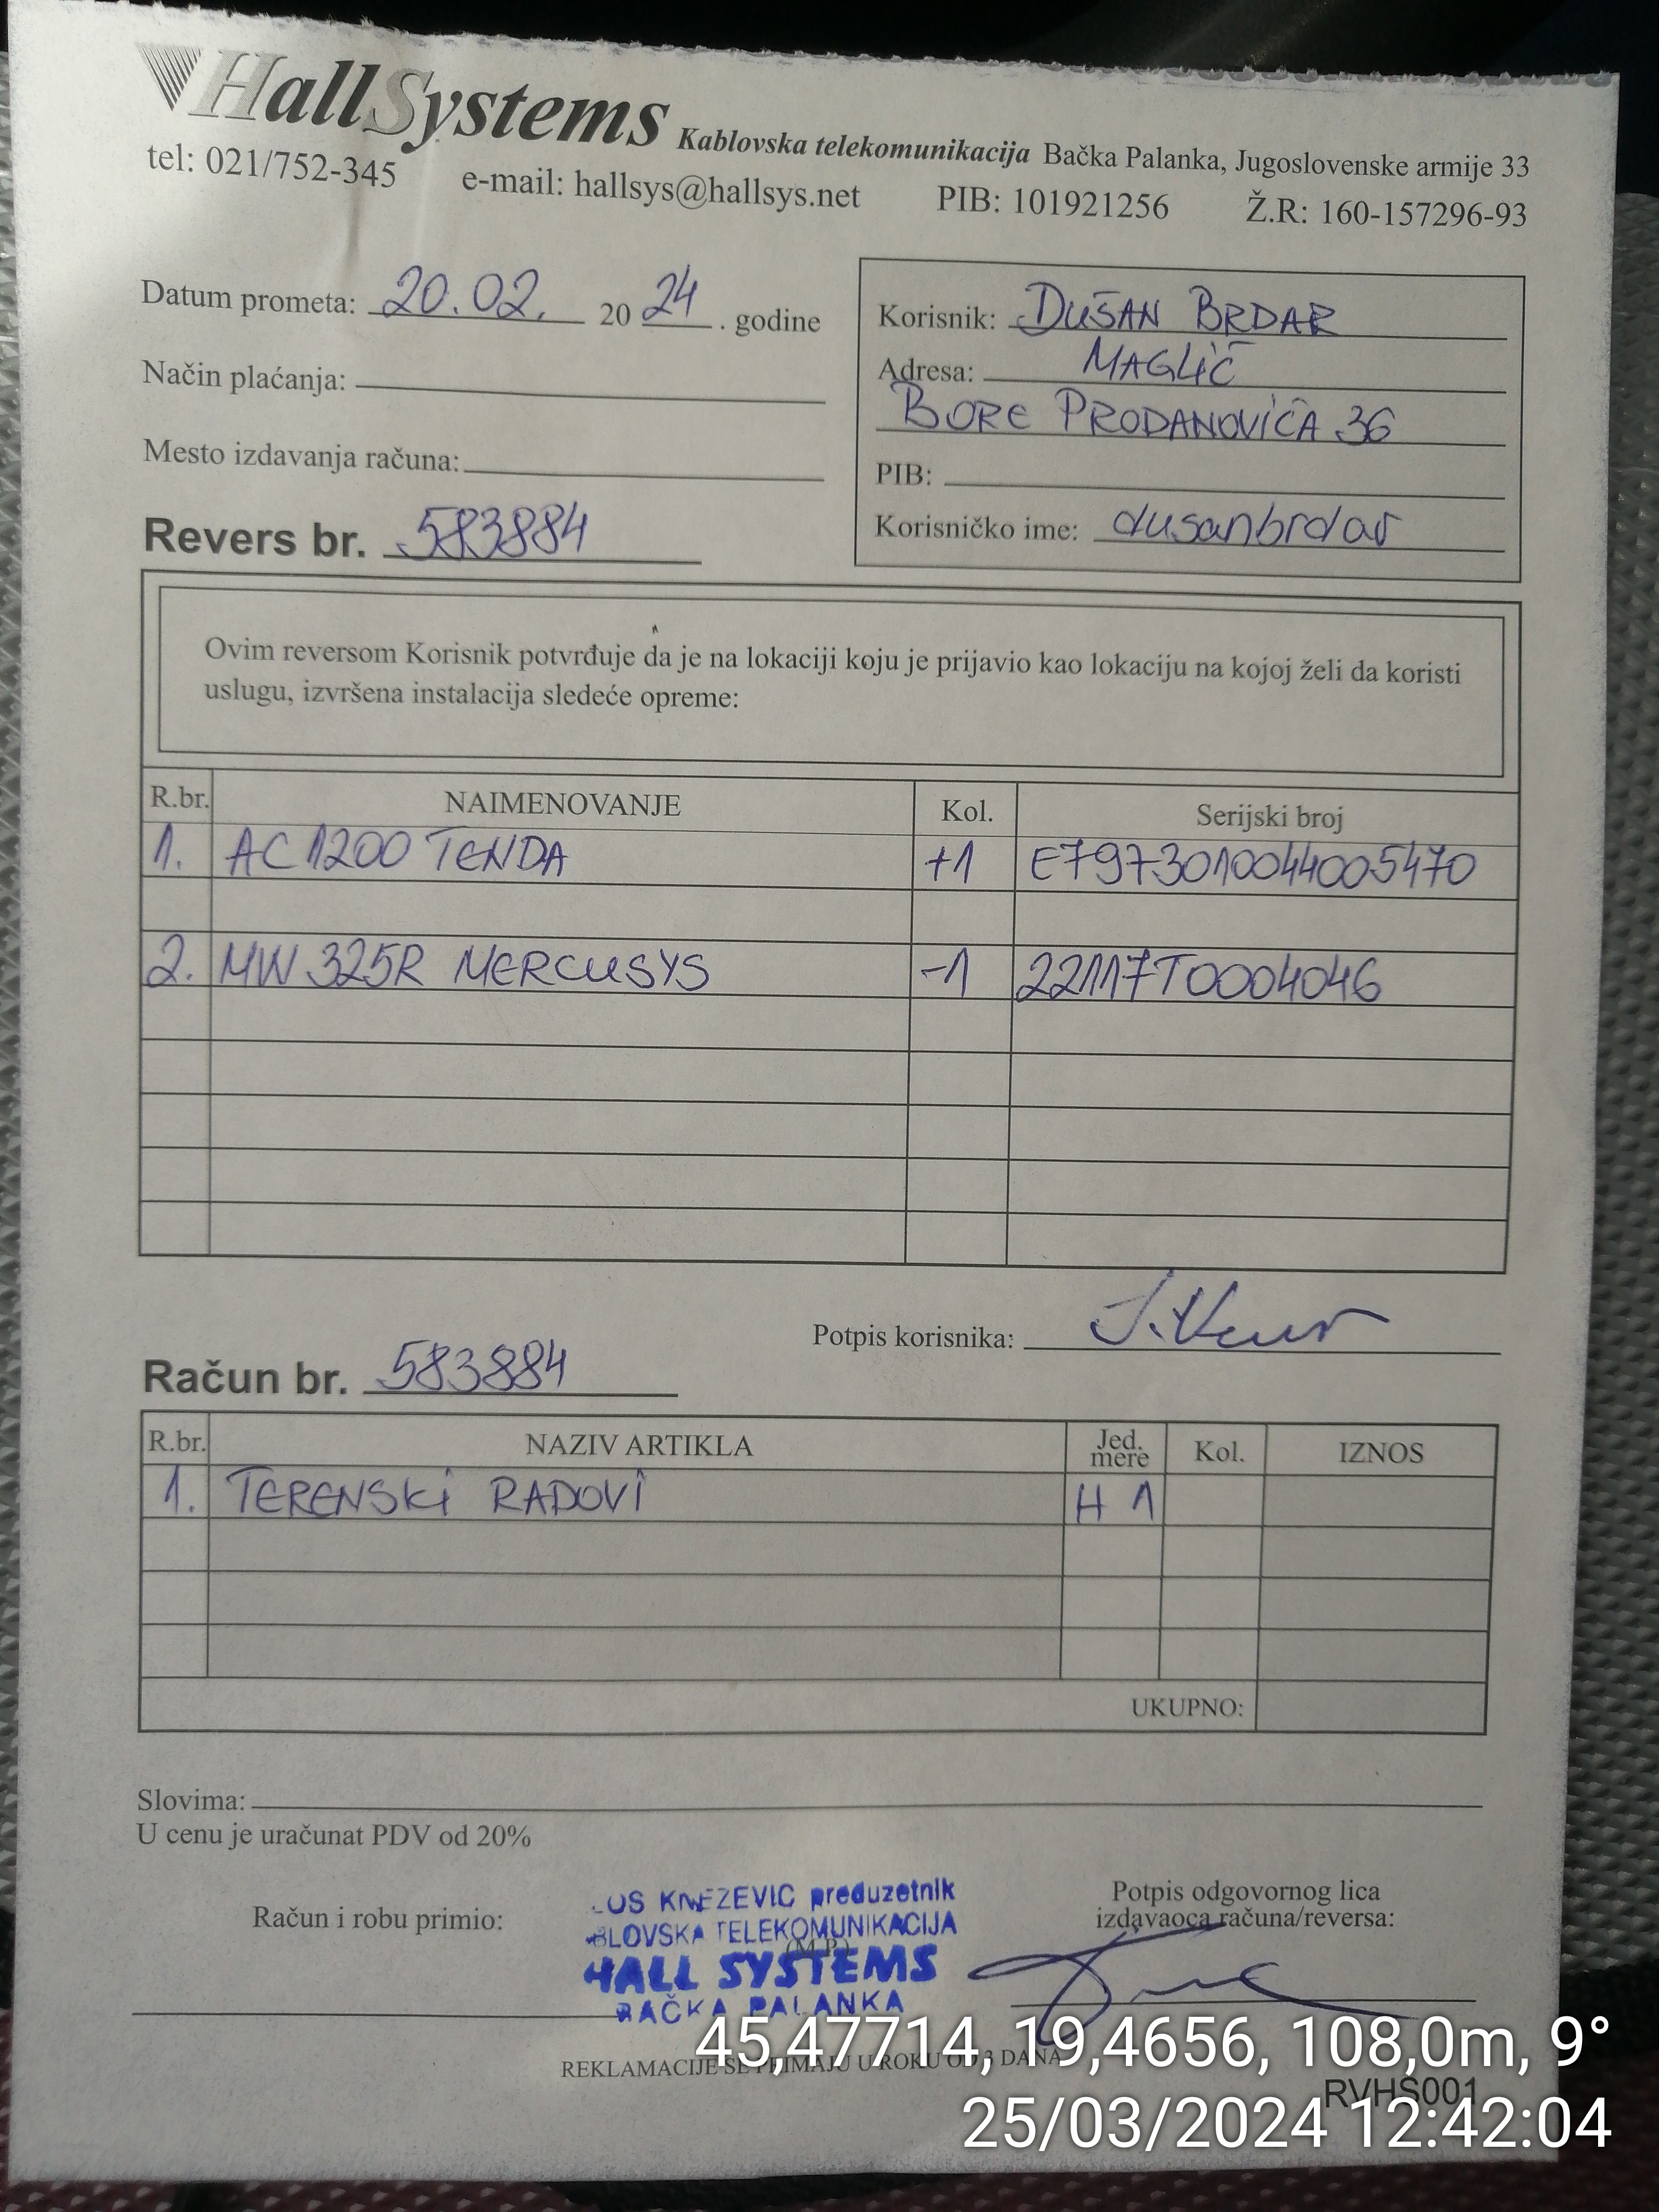 HallSystems Kablovska telekomunikacija Bačka Palanka, Jugoslovenske armije 33
tel: 021/752-345 e-mail: hallsys@hallsys.net PIB: 101921256 Ž.R: 160-157296-93
Datum prometa: 20.02. 20 24 . godine
Način plaćanja:
Mesto izdavanja računa:
Revers br. 583884
Korisnik: DUŠAN BRDAR
Adresa: MAGLIĆ
BORE PRODANOVIĆA 36
PIB:
Korisničko ime: dusanbrdar
Ovim reversom Korisnik potvrđuje da je na lokaciji koju je prijavio kao lokaciju na kojoj želi da koristi
uslugu, izvršena instalacija sledeće opreme:
R.br. NAIMENOVANJE Kol. Serijski broj
1. AC1200 TENDA +1 E7973010044005470
2. MW 325R MERCUSYS -1 22117T0004046
Potpis korisnika:
Račun br. 583884
R.br. NAZIV ARTIKLA Jed. mere Kol. IZNOS
1. TERENSKI RADOVI H 1
UKUPNO:
Slovima:
U cenu je uračunat PDV od 20%
Račun i robu primio:
KNEZEVIC preduzetnik
TELEKOMUNIKACIJA
(M.P.)
HALL SYSTEMS
BAČKA PALANKA
Potpis odgovornog lica
izdavaoca računa/reversa:
REKLAMACIJE SE PRIMAJU U ROKU OD 3 DANA
RVHS001
45,47714, 19,4656, 108,0m, 9°
25/03/2024 12:42:04